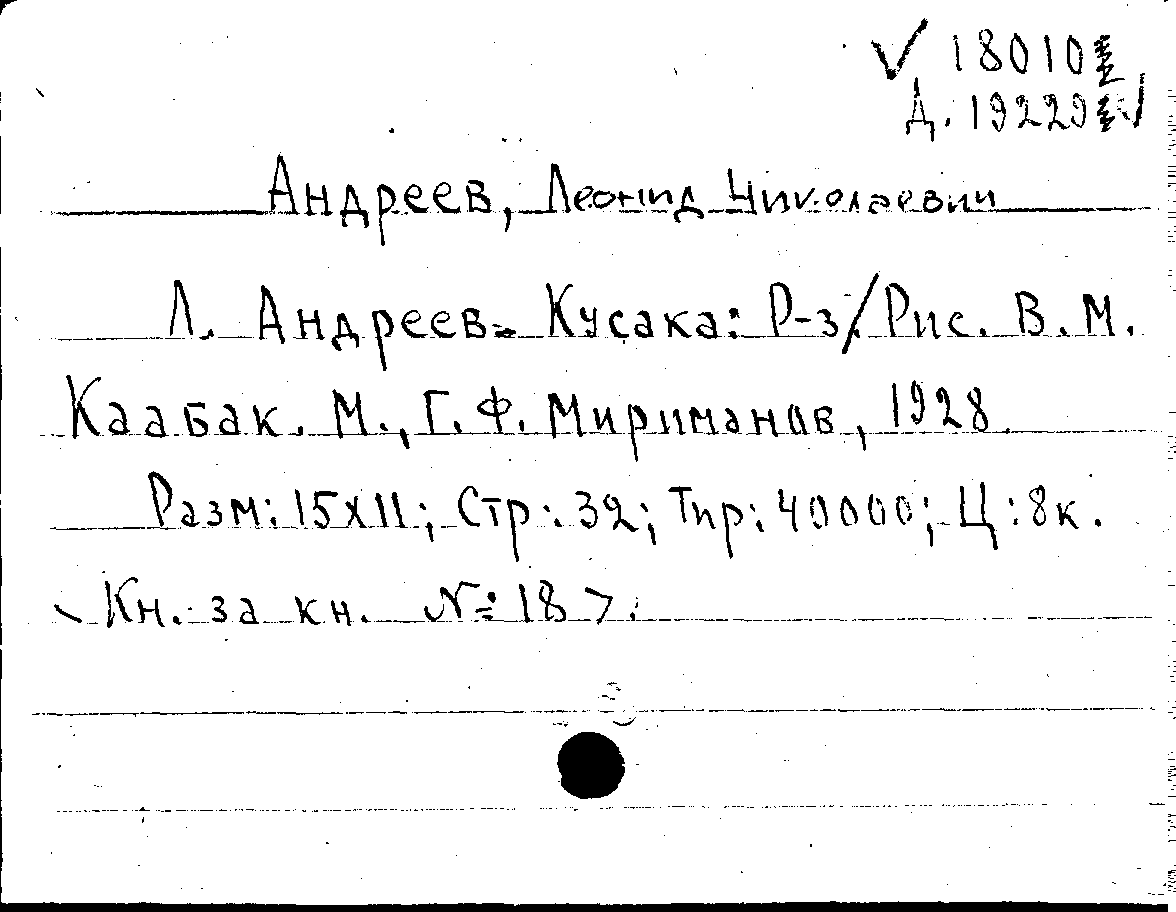 √ 18010
Д. 19229 √
Андреев, Леонид Николаевич
Л. Андреев. Кусака: Р-з/Рис. В. М.
Каабак. М., Г. Ф. Мириманов, 1928.
Разм: 15х11; Стр: 32; Тир: 40000; Ц: 8к.
Кн. за кн. № 187.